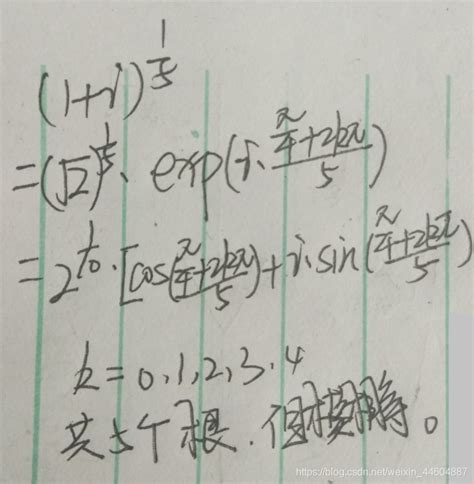 (1+i)^(1/5)
=(√2)^(1/5)·exp(i·(π/4+2kπ)/5)
=2^(1/10)·[cos((π/4+2kπ)/5)+i·sin((π/4+2kπ)/5)
k=0,1,2,3,4
共5个根,但模相等。
https://blog.csdn.net/weixin_44604887